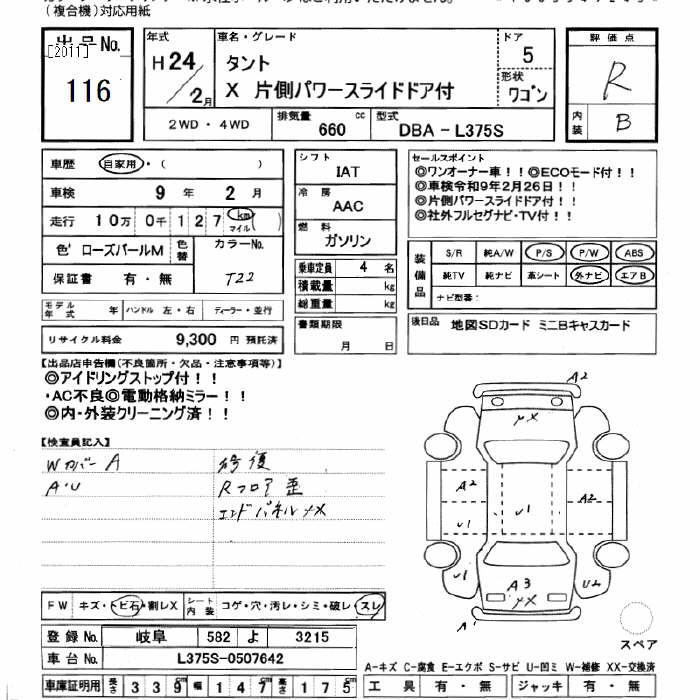 (複合機)対応用紙
出品No.
[2011]
116
年式
H24/2月
車名・グレード
タント
X 片側パワースライドドア付
ドア
5
形状
ワゴン
評価点
R
内装
B
2WD・4WD
排気量
660 cc
型式
DBA-L375S
車歴 自家用・( )
車検 9年 2月
走行 10万 0千 127 km マイル ( )
色 ローズパールM
色替
カラーNo.
T22
保証書 有・無
モデル年式 年
ハンドル 左・右
ディーラー・並行
リサイクル料金 9,300 円 預託済
シフト
IAT
冷房
AAC
燃料
ガソリン
乗車定員 4 名
積載量 kg
総重量 kg
書類期限
月 日
セールスポイント
◎ワンオーナー車!!◎ECOモード付!!
◎車検令和9年2月26日!!
◎片側パワースライドドア付!!
◎社外フルセグナビ・TV付!!
装備品
S/R 純A/W P/S P/W ABS
純TV 純ナビ 革シート 外ナビ エアB
ナビ型番:
後日品 地図SDカード ミニBキャスカード
【出品店申告欄(不良箇所・欠品・注意事項等)】
◎アイドリングストップ付!!
・AC不良◎電動格納ミラー!!
◎内・外装クリーニング済!!
【検査員記入】
Wカバー A
A・U
修復
Rフロア 歪
エンドパネル メX
A2
メX
A2
A2
U1
U1
U1
U2
A3
メX
A1
スペア
FW キズ・トビ石・割レX
シート内装 コゲ・穴・汚レ・シミ・破レ・スレ
登録No. 岐阜 582 よ 3215
車台No. L375S-0507642
車庫証明用 長さ 339cm 幅 147cm 高さ 175cm
A-キズ C-腐食 E-エクボ S-サビ U-凹ミ W-補修 XX-交換済
工具 有・無 ジャッキ 有・無